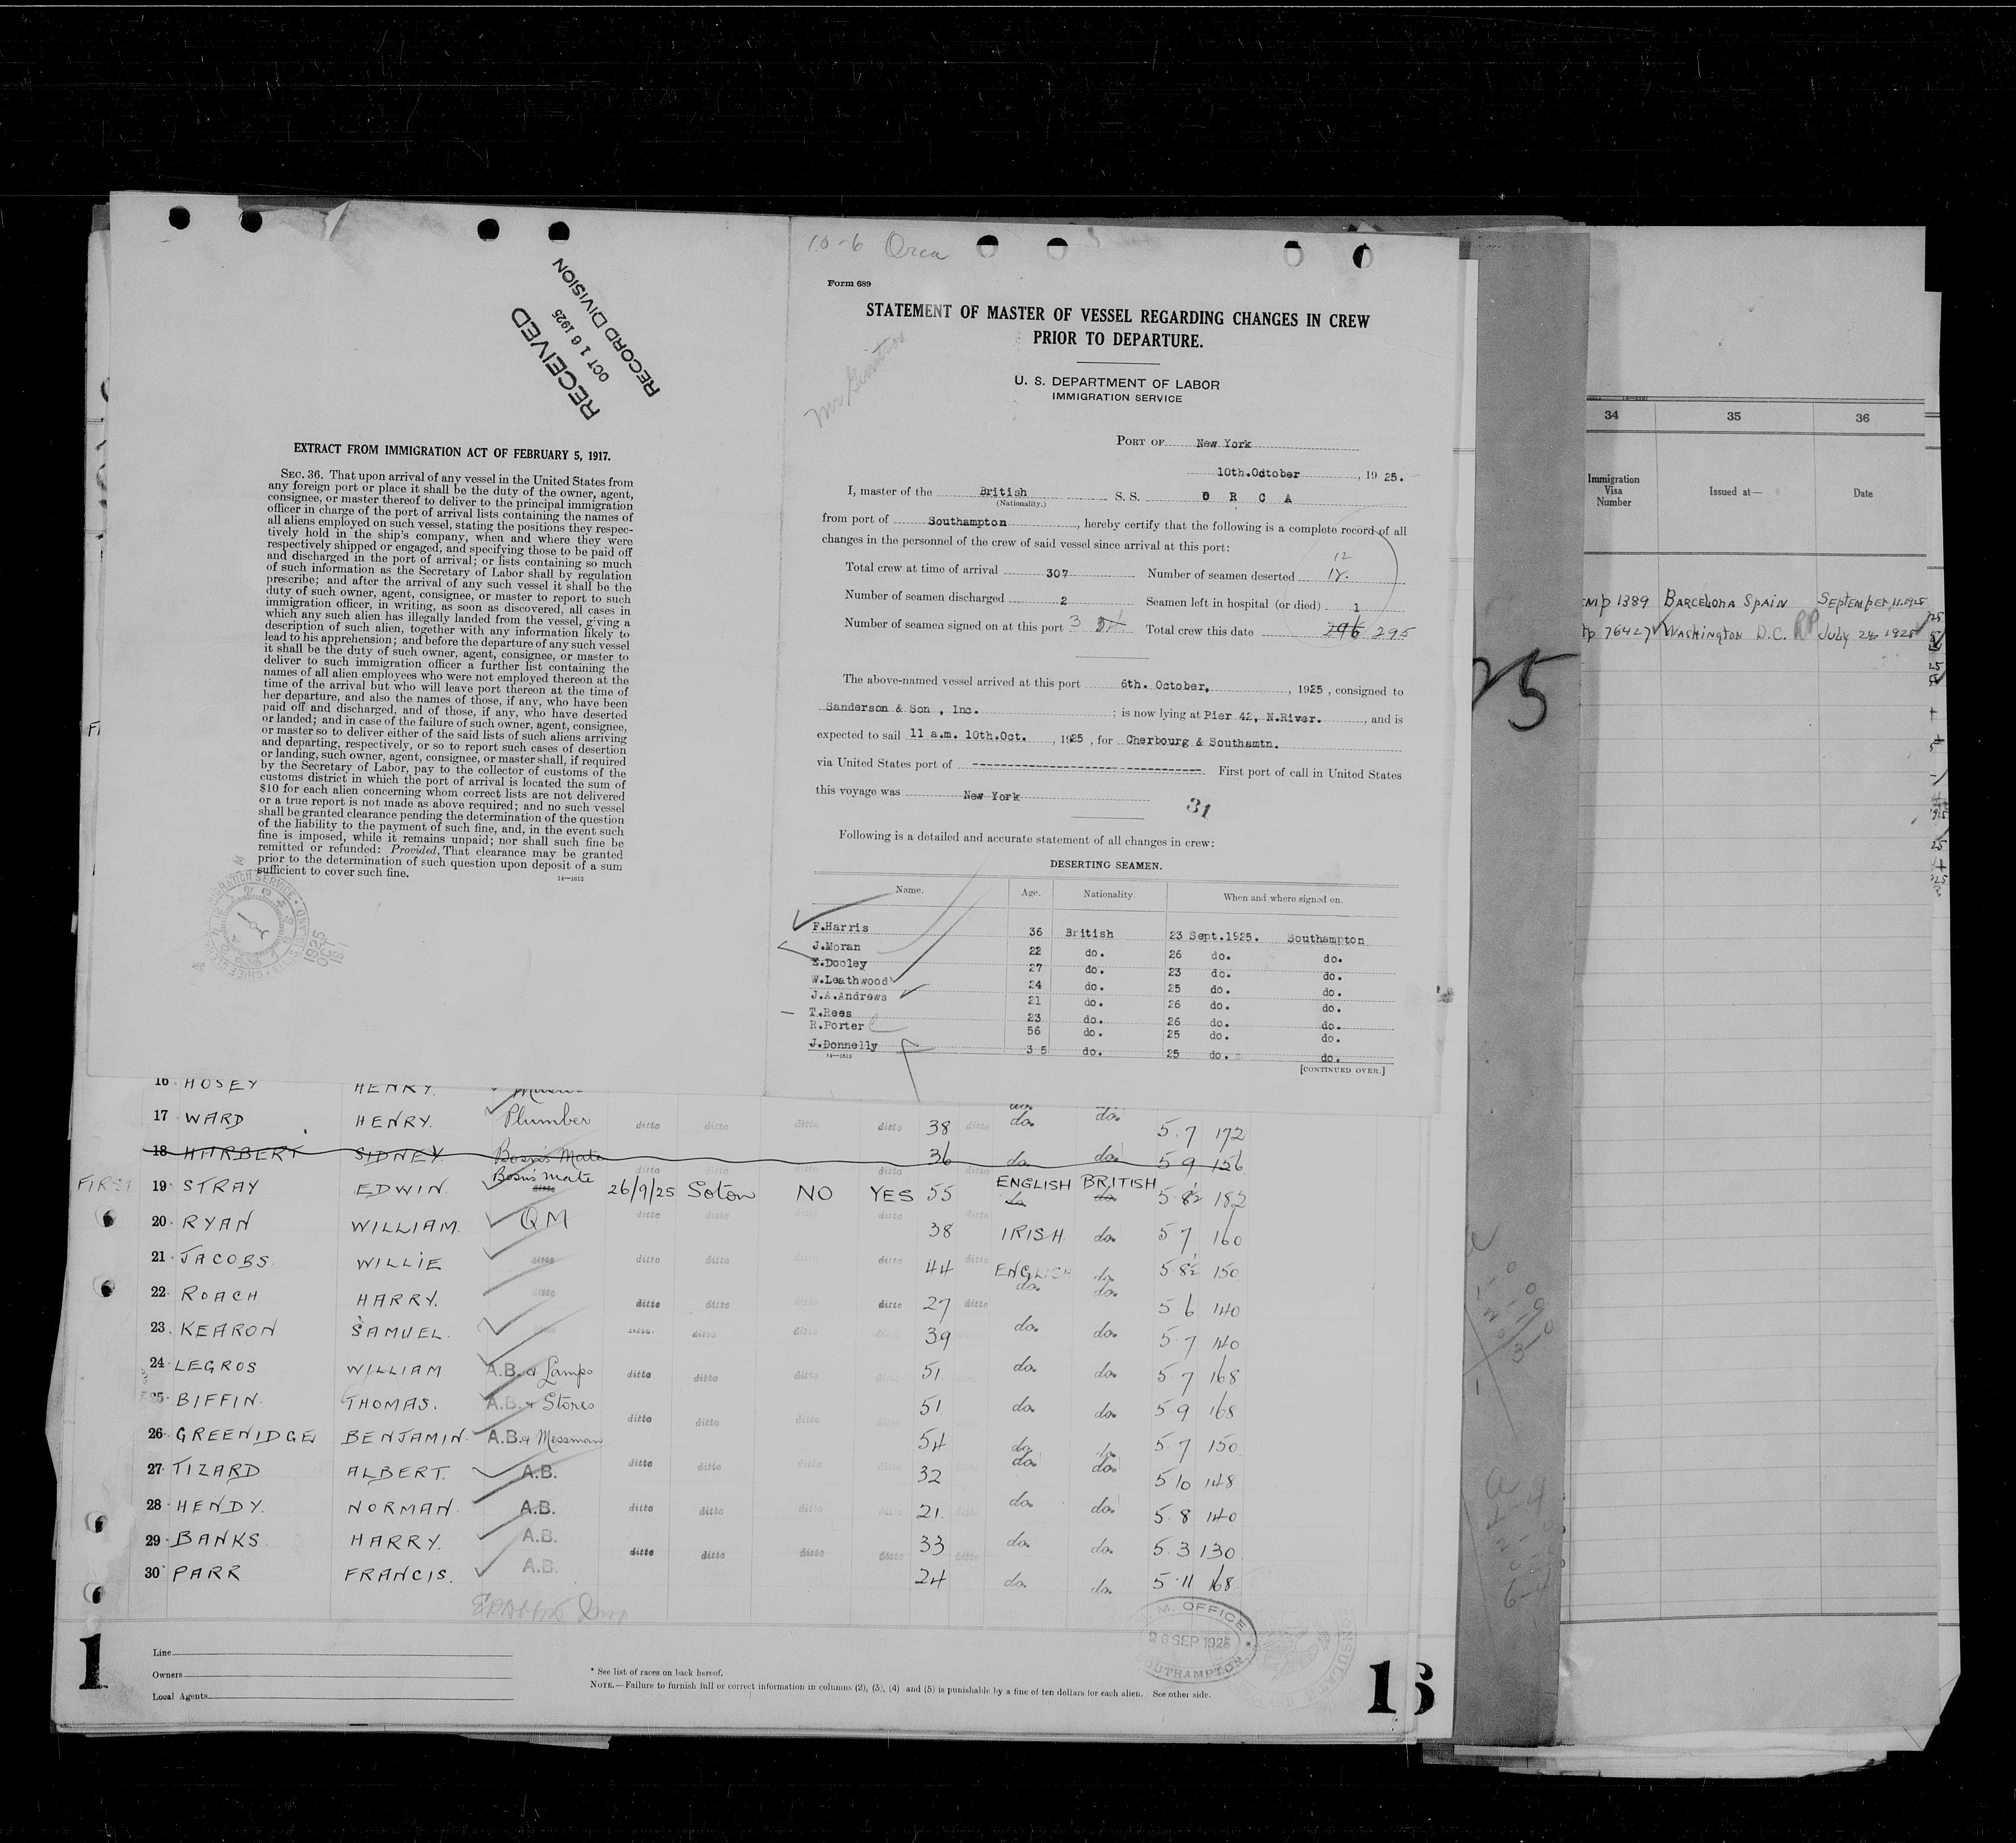 RECEIVED
OCT 16 1925
RECORD DIVISION
EXTRACT FROM IMMIGRATION ACT OF FEBRUARY 5, 1917.
SEC. 36. That upon arrival of any vessel in the United States from
any foreign port or place it shall be the duty of the owner, agent,
consignee, or master thereof to deliver to the principal immigration
officer in charge of the port of arrival lists containing the names of
all aliens employed on such vessel, stating the positions they respec-
tively hold in the ship's company, when and where they were
respectively shipped or engaged, and specifying those to be paid off
and discharged in the port of arrival; or lists containing so much
of such information as the Secretary of Labor shall by regulation
prescribe; and after the arrival of any such vessel it shall be the
duty of such owner, agent, consignee, or master to report to such
immigration officer, in writing, as soon as discovered, all cases in
which any such alien has illegally landed from the vessel, giving a
description of such alien, together with any information likely to
lead to his apprehension; and before the departure of any such vessel
it shall be the duty of such owner, agent, consignee, or master to
deliver to such immigration officer a further list containing the
names of all alien employees who were not employed thereon at the
time of the arrival but who will leave port thereon at the time of
her departure, and also the names of those, if any, who have been
paid off and discharged, and of those, if any, who have deserted
or landed; and in case of the failure of such owner, agent, consignee,
or master so to deliver either of the said lists of such aliens arriving
and departing, respectively, or so to report such cases of desertion
or landing, such owner, agent, consignee, or master shall, if required
by the Secretary of Labor, pay to the collector of customs of the
customs district in which the port of arrival is located the sum of
$10 for each alien concerning whom correct lists are not delivered
or a true report is not made as above required; and no such vessel
shall be granted clearance pending the determination of the question
of the liability to the payment of such fine, and, in the event such
fine is imposed, while it remains unpaid; nor shall such fine be
remitted or refunded: Provided, That clearance may be granted
prior to the determination of such question upon deposit of a sum
sufficient to cover such fine.
14—1613
1925 OCT
10-6 Orca
Form 689
STATEMENT OF MASTER OF VESSEL REGARDING CHANGES IN CREW
PRIOR TO DEPARTURE.
U. S. DEPARTMENT OF LABOR
IMMIGRATION SERVICE
PORT OF New York
10th.October, 1925.
I, master of the British S. S. O R C A
(Nationality.)
from port of Southampton, hereby certify that the following is a complete record of all
changes in the personnel of the crew of said vessel since arrival at this port:
12
Total crew at time of arrival 307 Number of seamen deserted
Number of seamen discharged 2 Seamen left in hospital (or died) 1
Number of seamen signed on at this port 3 Total crew this date 296 295
The above-named vessel arrived at this port 6th. October, , 1925, consigned to
Sanderson & Son , Inc. ; is now lying at Pier 42, N.River. , and is
expected to sail 11 a.m. 10th.Oct. , 1925, for Cherbourg & Southamtn.
via United States port of First port of call in United States
this voyage was New York
31
Following is a detailed and accurate statement of all changes in crew:
DESERTING SEAMEN.
Name. Age. Nationality. When and where signed on.
F.Harris 36 British 23 Sept.1925. Southampton
J.Moran 22 do. 26 do. do.
E.Dooley 27 do. 23 do. do.
W.Leathwood 24 do. 25 do. do.
J.A.Andrews 21 do. 26 do. do.
T.Rees 23 do. 26 do. do.
R.Porter 56 do. 25 do. do.
J.Donnelly 3 5 do. 25 do. do.
14—1613
[CONTINUED OVER.]
34 35 36
Immigration Visa Number Issued at— Date
1389 BARCELONA SPAIN SEPTEMBER 11.1925
76427 WASHINGTON D.C. RP JULY 24 1925
16 HOSEY HENRY.
17 WARD HENRY. Plumber ditto ditto ditto ditto 38 ditto do. do. 5.7 172
18 HARBERT SIDNEY Bosn's Mate 36 do. do. 5 9 156
FIRST 19 STRAY EDWIN. Bosn's mate 26/9/25 Soton NO YES 55 ENGLISH BRITISH 5.8½ 182
20 RYAN WILLIAM. QM ditto ditto ditto ditto 38 IRISH do. 5 7 160
21 JACOBS WILLIE ditto ditto ditto ditto ditto 44 ditto ENGLISH do 5.8½ 150
22 ROACH HARRY. ditto ditto ditto ditto ditto 27 ditto do. do. 5 6 140
23 KEARON SAMUEL. ditto ditto ditto ditto 39 do. do. 5 7 140
24 LEGROS WILLIAM A.B. & Lamps ditto ditto ditto ditto 51 do. do. 5 7 168
25 BIFFIN. THOMAS. A.B. & Stores ditto ditto ditto ditto 51 do. do. 5 9 168
26 GREENIDGE BENJAMIN. A.B. & Messman 54 do. do. 5 7 150
27 TIZARD ALBERT. A.B. ditto ditto ditto ditto 32 do. do. 5 10 148
28 HENDY. NORMAN. A.B. ditto ditto ditto ditto 21 do. do. 5 8 140
29 BANKS HARRY. A.B. ditto ditto ditto ditto 33 ditto do. do. 5.3 130
30 PARR FRANCIS. A.B. 24 do. do. 5.11 168
M. OFFICE
26 SEP 1925
SOUTHAMPTON
1
Line
Owners
Local Agents
* See list of races on back hereof.
NOTE.—Failure to furnish full or correct information in columns (2), (3), (4) and (5) is punishable by a fine of ten dollars for each alien. See other side.
16